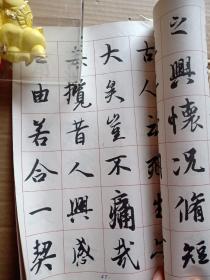 之興懷况脩短
古人云死生
大矣豈不痛哉
每攬昔人興感
由若合一契